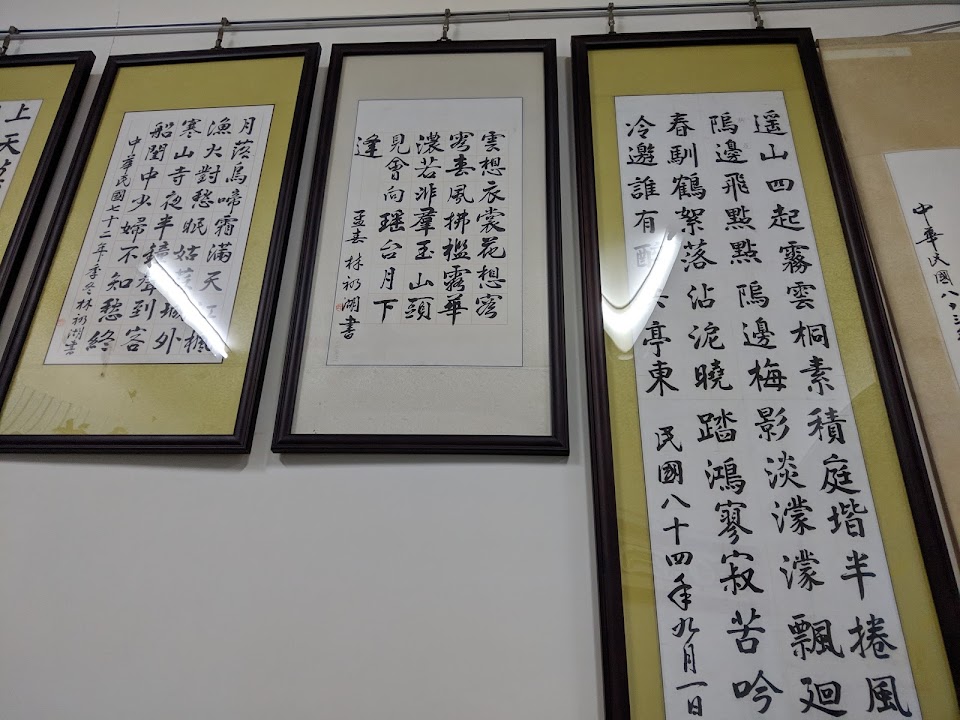 中華民國八十三
遥山四起霧雲桐素積庭堦半捲風
塢邊飛點點塢邊梅影淡濛濛飄廻
春馴鶴絮落沾泥曉踏鴻寥寂苦吟
冷邀誰有亭東
民國八十四年九月一日
雲想衣裳花想容
春風拂檻露華
濃若非羣玉山頭
見會向瑶台月下
逢
孟春 林湖書
月落烏啼霜滿天江楓
漁火對愁眠姑蘇城外
寒山寺夜半鐘聲到客
船閨中少婦不知愁終
中華民國七十二年季冬林湖書
上天